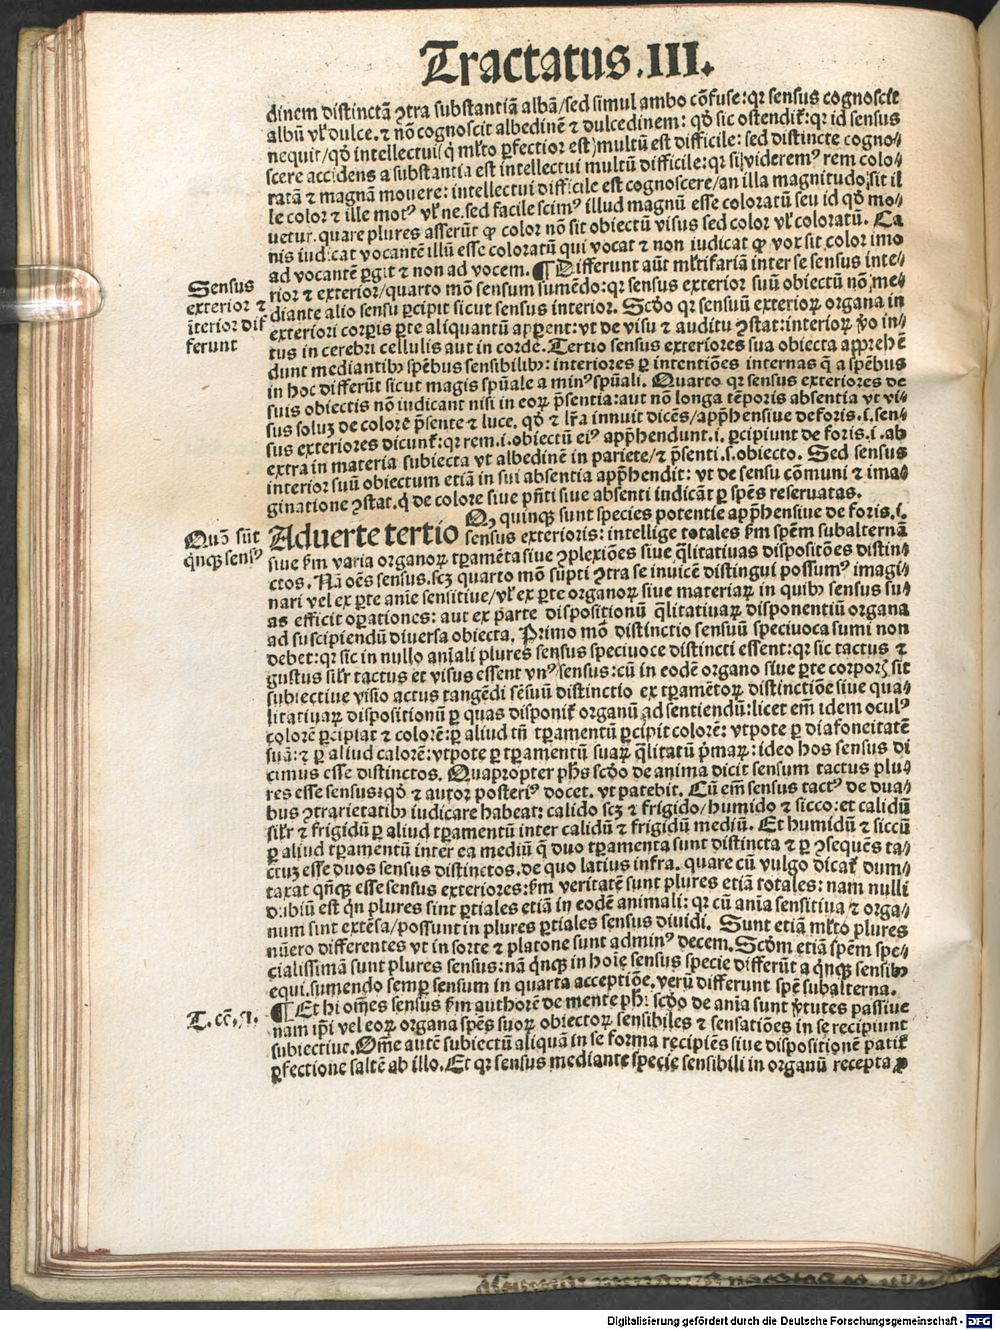 Tractatus.III.
dinem distinctā ↄtra substantiā albā/sed simul ambo cōfuse:qꝛ sensus cognoscit
albū vl̕ dulce.⁊ nō cognoscit albedinē ⁊ dulcedinem: qđ sic ostendit̕:qꝛ id sensus
nequit/qđ intellectui(q̇ ml̕to ꝑfectior est)multū est difficile: sed distincte cogno⸗
scere accidens a substantia est intellectui multū difficile:qꝛ si viderem⁹ rem colo⸗
ratā ⁊ magnā mouere: intellectui difficile est cognoscere/an illa magnitudo sit il
le color ⁊ ille mot⁹ vl̕ ne.sed facile scim⁹ illud magnū esse coloratū seu id qđ mo⸗
uetur.quare plures asserūt ꝙ color nō sit obiectū visus sed color vl̕ coloratū. Ca
nis iudicat vocantē illū esse coloratū qui vocat ⁊ non iudicat ꝙ vox sit color imo
ad vocantē ꝑgit ⁊ non ad vocem. ¶ Differunt aūt ml̕tifariā inter se sensus inte⸗
Sensus
exterior ⁊
īterior dif
ferunt
rior ⁊ exterior/quarto mō sensum sumēdo:qꝛ sensus exterior suū obiectū nō me⸗
diante alio sensu ꝑcipit sicut sensus interior. Scđo qꝛ sensuū exterioꝝ organa in
exteriori corꝑis ꝑte aliquantū apꝑent:vt de visu ⁊ auditu ↄstat:interioꝝ v̕o in⸗
tus in cerebri cellulis aut in corde.Tertio sensus exteriores sua obiecta appreh̄e
dunt mediantibꝰ sp̄ebus sensibilibꝰ: interiores ꝑ intentiōes internas q̄ a sp̄ebus
in hoc differūt sicut magis spūale a min⁹ spūali. Quarto qꝛ sensus exteriores de
suis obiectis nō iudicant nisi in eoꝝ p̄sentia:aut nō longa tēporis absentia vt vi⸗
sus soluꝫ de colore p̄sente ⁊ luce. qđ ⁊ lr̄a innuit dicēs/app̄hensiue deforis.i.sen⸗
sus exteriores dicunt̕:qꝛ rem.i.obiectū ei⁹ app̄hendunt.i. ꝑcipiunt de foris.i.ab
extra in materia subiecta vt albedinē in pariete/⁊ p̄senti.s.obiecto. Sed sensus
interior suū obiectum etiā in sui absentia app̄hendit: vt de sensu cōmuni ⁊ ima⸗
ginatione ↄstat.q̇ de colore siue p̄nti siue absenti indicāt ꝑ sp̄es reseruatas.
Quō sūt
q̇nqꝫ sens⁹
Aduerte tertio Qꝫ quinqꝫ sunt species potentie app̄hensiue de foris.i.
sensus exterioris: intellige totales ẜm sp̄em subalternā
siue ẜm varia organoꝝ tꝑamēta siue ↄplexiōes siue q̄litatiuas dispositōes distin⸗
ctos. Nā oēs sensus.scꝫ quarto mō sūpti ↄtra se inuicē distingui possum⁹ imagi⸗
nari vel ex ꝑte anīe sensitiue/vl̕ ex ꝑte organoꝝ siue materiaꝝ in quibꝰ sensus su⸗
as efficit oꝑationes: aut ex parte dispositionū q̄litatiuaꝝ disponentiū organa
ad suscipiendū diuersa obiecta. Primo mō distinctio sensuū speciuoca sumi non
debet:qꝛ sic in nullo anīali plures sensus speciuoce distincti essent:qꝛ sic tactus ⁊
gustus sil̕r tactus et visus essent vn⁹ sensus: cū in eodē organo siue ꝑte corporꝭ sit
subiectiue visio actus tangēdi sēsuū distinctio ex tꝑamētoꝝ distinctiōe siue qua⸗
litatiuaꝝ dispositionū ꝑ quas disponit̕ organū ad sentiendū:licet em̄ idem ocul⁹
colorē ꝑcipiat ⁊ colorē:ꝑ aliud tn̄ tꝑamentū ꝑcipit colorē: vtpote ꝑ diafoneitatē
suā:⁊ ꝑ aliud calorē:vtpote ꝑ tꝑamentū suaꝝ q̄litatū p̄maꝝ: ideo hos sensus di
cimus esse distinctos. Quapropter ph̄s scđo de anima dicit sensum tactus plu⸗
res esse sensus:qđ ⁊ autor posteri⁹ docet. vt patebit. Cū em̄ sensus tact⁹ de dua⸗
bus ↄtrarietatibꝰ iudicare habeat: calido scꝫ ⁊ frigido/humido ⁊ sicco:et calidū
sil̕r ⁊ frigidū ꝑ aliud tꝑamentū inter calidū ⁊ frigidū mediū. Et humidū ⁊ siccū
ꝑ aliud tꝑamentū inter ea mediū q̄ duo tꝑamenta sunt distincta ⁊ ꝑ ↄsequēs ta⸗
ctuꝫ esse duos sensus distinctos.de quo latius infra. quare cū vulgo dicat̕ dum⸗
taxat qn̄qꝫ esse sensus exteriores:ẜm veritatē sunt plures etiā totales: nam nulli
dubiū est q̇n plures sint ꝑtiales etiā in eodē animali: qꝛ cū anīa sensitiua ⁊ orga⸗
num sunt extēsa/possunt in plures ꝑtiales sensus diuidi. Sunt etiā ml̕to plures
nūero differentes vt in sorte ⁊ platone sunt admin⁹ decem.Scđm etiā sp̄em spe⸗
cialissimā sunt plures sensus:nā q̇nqꝫ in hoīe sensus specie differūt a q̇nqꝫ sensibꝰ
equi.sumendo semꝑ sensum in quarta acceptiōe.verū differunt sp̄e subalterna.
T. cē. ⁊.
¶ Et hi om̄es sensus ẜm authorē de mente ph̄i scđo de anīa sunt v̕tutes passiue
nam ip̄i vel eoꝝ organa sp̄es suoꝝ obiectoꝝ sensibiles ⁊ sensatiōes in se recipiunt
subiectiue.Om̄e autē subiectū aliquā in se forma recipiēs siue dispositionē patit̕
ꝑfectione saltē ab illo.Et qꝛ sensus mediante specie sensibili in organū recepta ꝑ